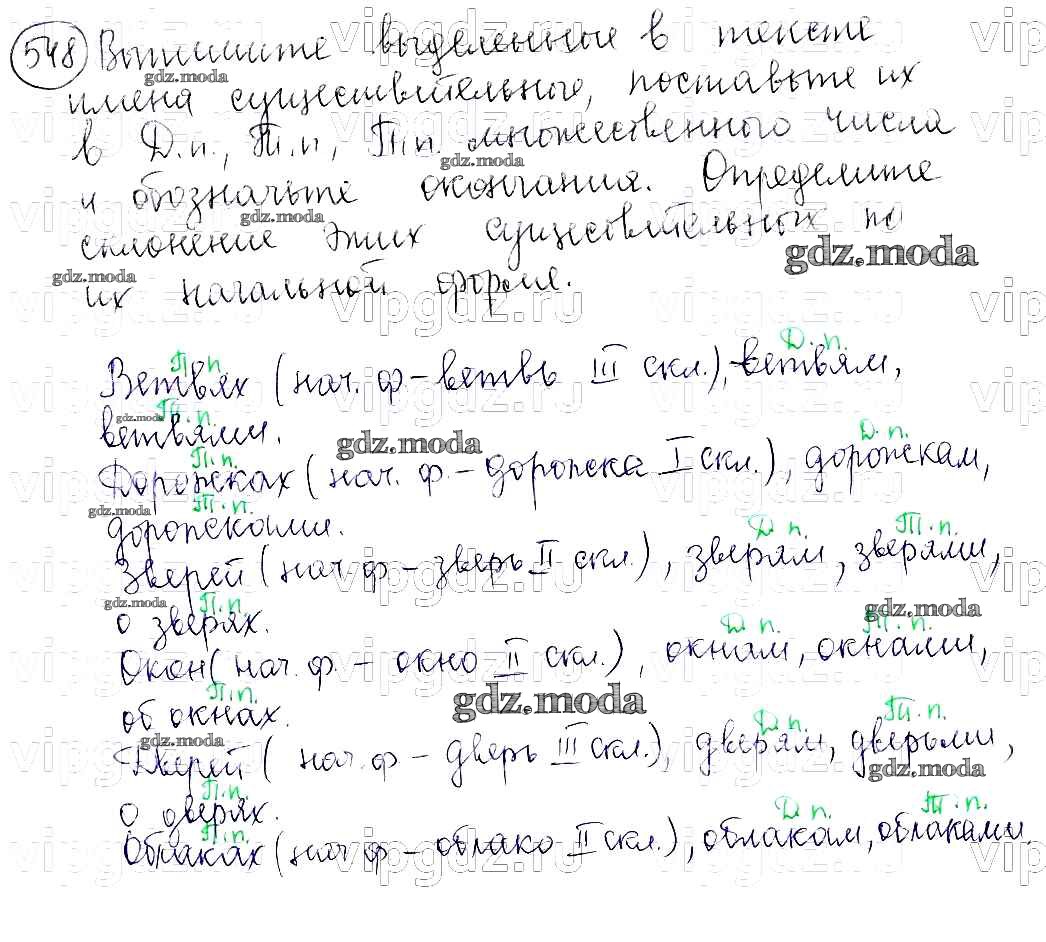 548 Выпишите выделенные в тексте
имена существительные, поставьте их
в Д.п., Т.п, П.п. множественного числа
и обозначьте окончания. Определите
склонение этих существительных по
их начальной форме.
П. п. Д. п.
Ветвях (нач. ф - ветвь III скл.), ветвям,
Т. п.
ветвями.
П. п. Д. п.
Дорожках (нач. ф. - дорожка I скл.), дорожкам,
Т. п.
дорожками.
Д. п. Т. п.
Зверей (нач. ф - зверь II скл.), зверям, зверями,
П. п.
о зверях.
Д. п. Т. п.
Окон (нач. ф. - окно II скл.), окнам, окнами,
П. п.
об окнах.
Д. п. Т. п.
Дверей (нач. ф - дверь III скл.), дверям, дверьми,
П. п.
о дверях.
П. п. Д. п. Т. п.
Облаках (нач ф - облако II скл.), облакам, облаками.
gdz.moda
vipgdz.ru